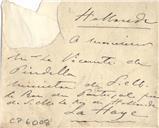 Hollande
A Monsieur
M. le Vicomte de
Pindella
Ministre de S. M.
le Roi de Portugal près
de S. M. le roy de Hollande
La Haye
CP 6008